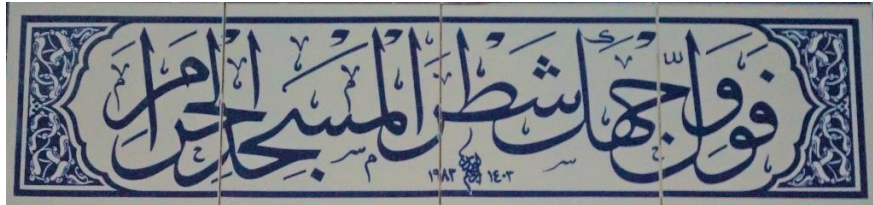 فَوَلِّ وَجْهَكَ شَطْرَ الْمَسْجِدِ الْحَرَامِ
١٤٠٣ ١٩٨٣